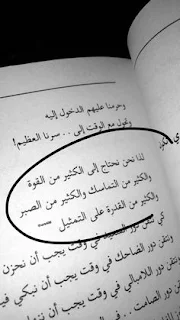 وحرمنا عليهم الدخول إليه
وتحول مع الوقت إلى . . سرنا العظيم!
لذا نحن نحتاج إلى الكثير من القوة
والكثير من التماسك والكثير من الصبر
والكثير من القدرة على التمثيل
كي نتقن دور في وقت يجب أن
ونتقن دور الضاحك في وقت يجب أن نبكي
ونتقن دور اللامبالي في وقت يجب أن
دور الصامت . . في